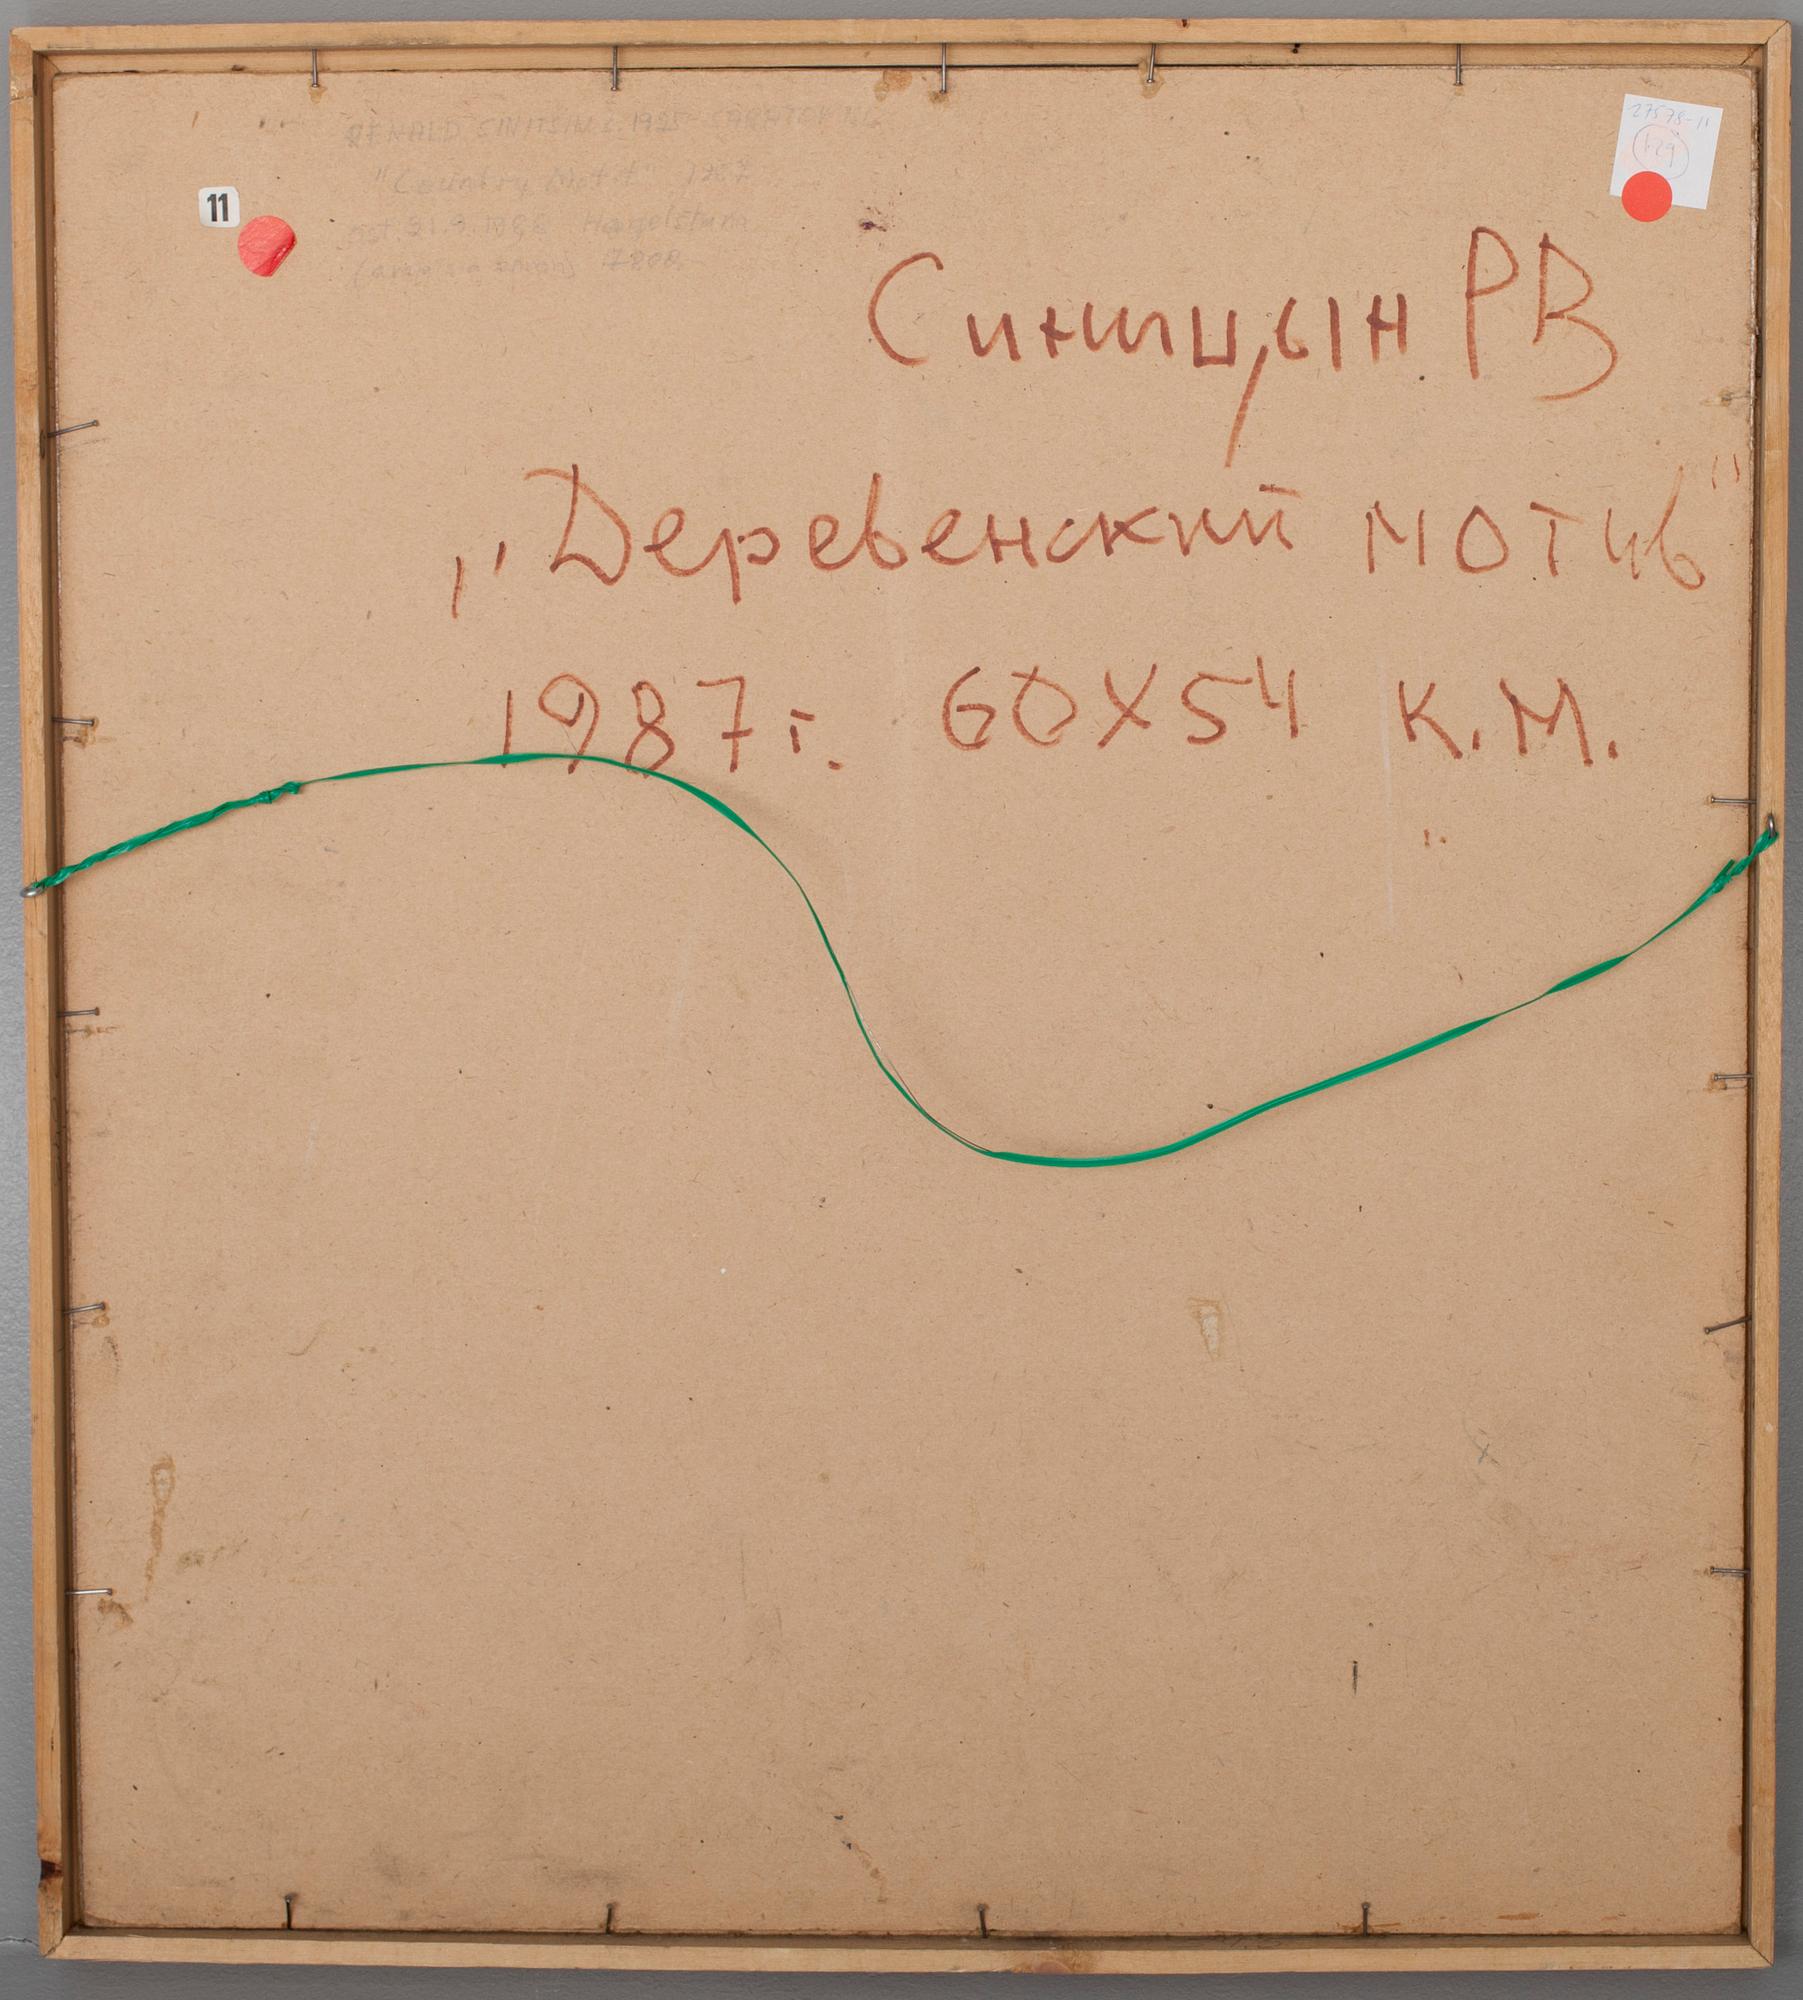 RENALD SINITSIN 1925 SARATOV
"Country Motit" 1987
21.9.1988 Hagelstam
7808
11
27578-11
129
Синицын РВ
„Деревенский мотив"
1987г. 60X54 К.М.